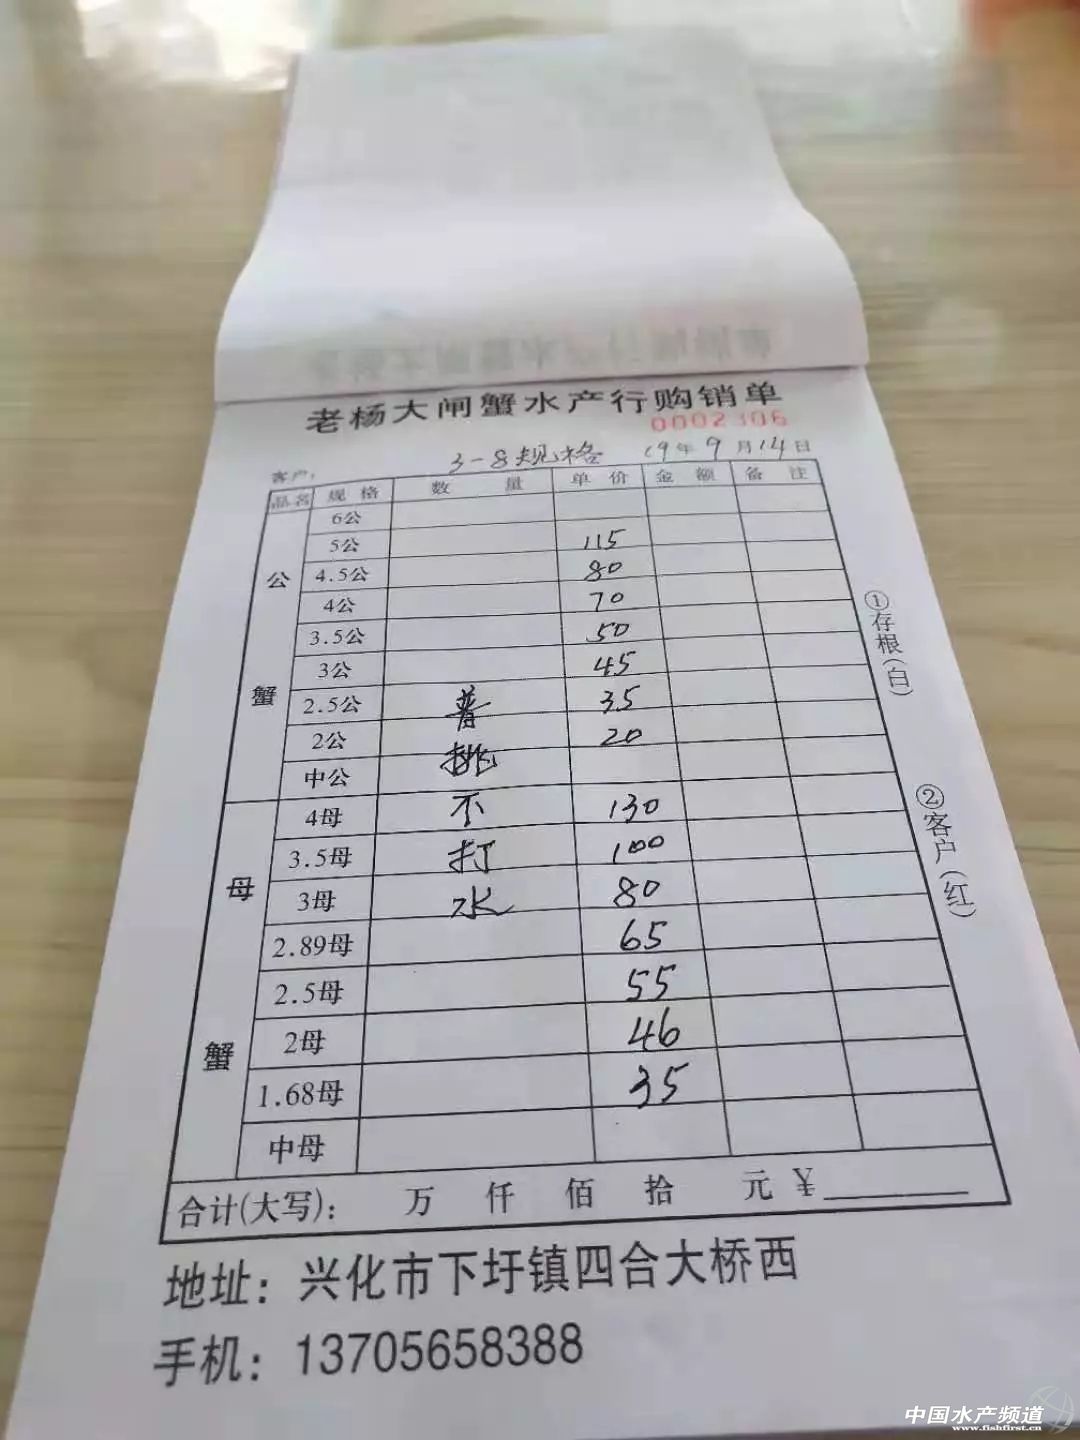 老杨大闸蟹水产行购销单
0002306
客户: 3-8规格 19年9月14日
品名 规格 数量 单价 金额 备注
公蟹
6公
5公 115
4.5公 80
4公 70
3.5公 50
3公 45
2.5公 普 35
2公 挑 20
中公
母蟹
4母 不 130
3.5母 打 100
3母 水 80
2.89母 65
2.5母 55
2母 46
1.68母 35
中母
合计(大写): 万 仟 佰 拾 元 ¥
①存根(白)
②客户(红)
地址: 兴化市下圩镇四合大桥西
手机: 13705658388
中国水产频道
www.fishfirst.cn